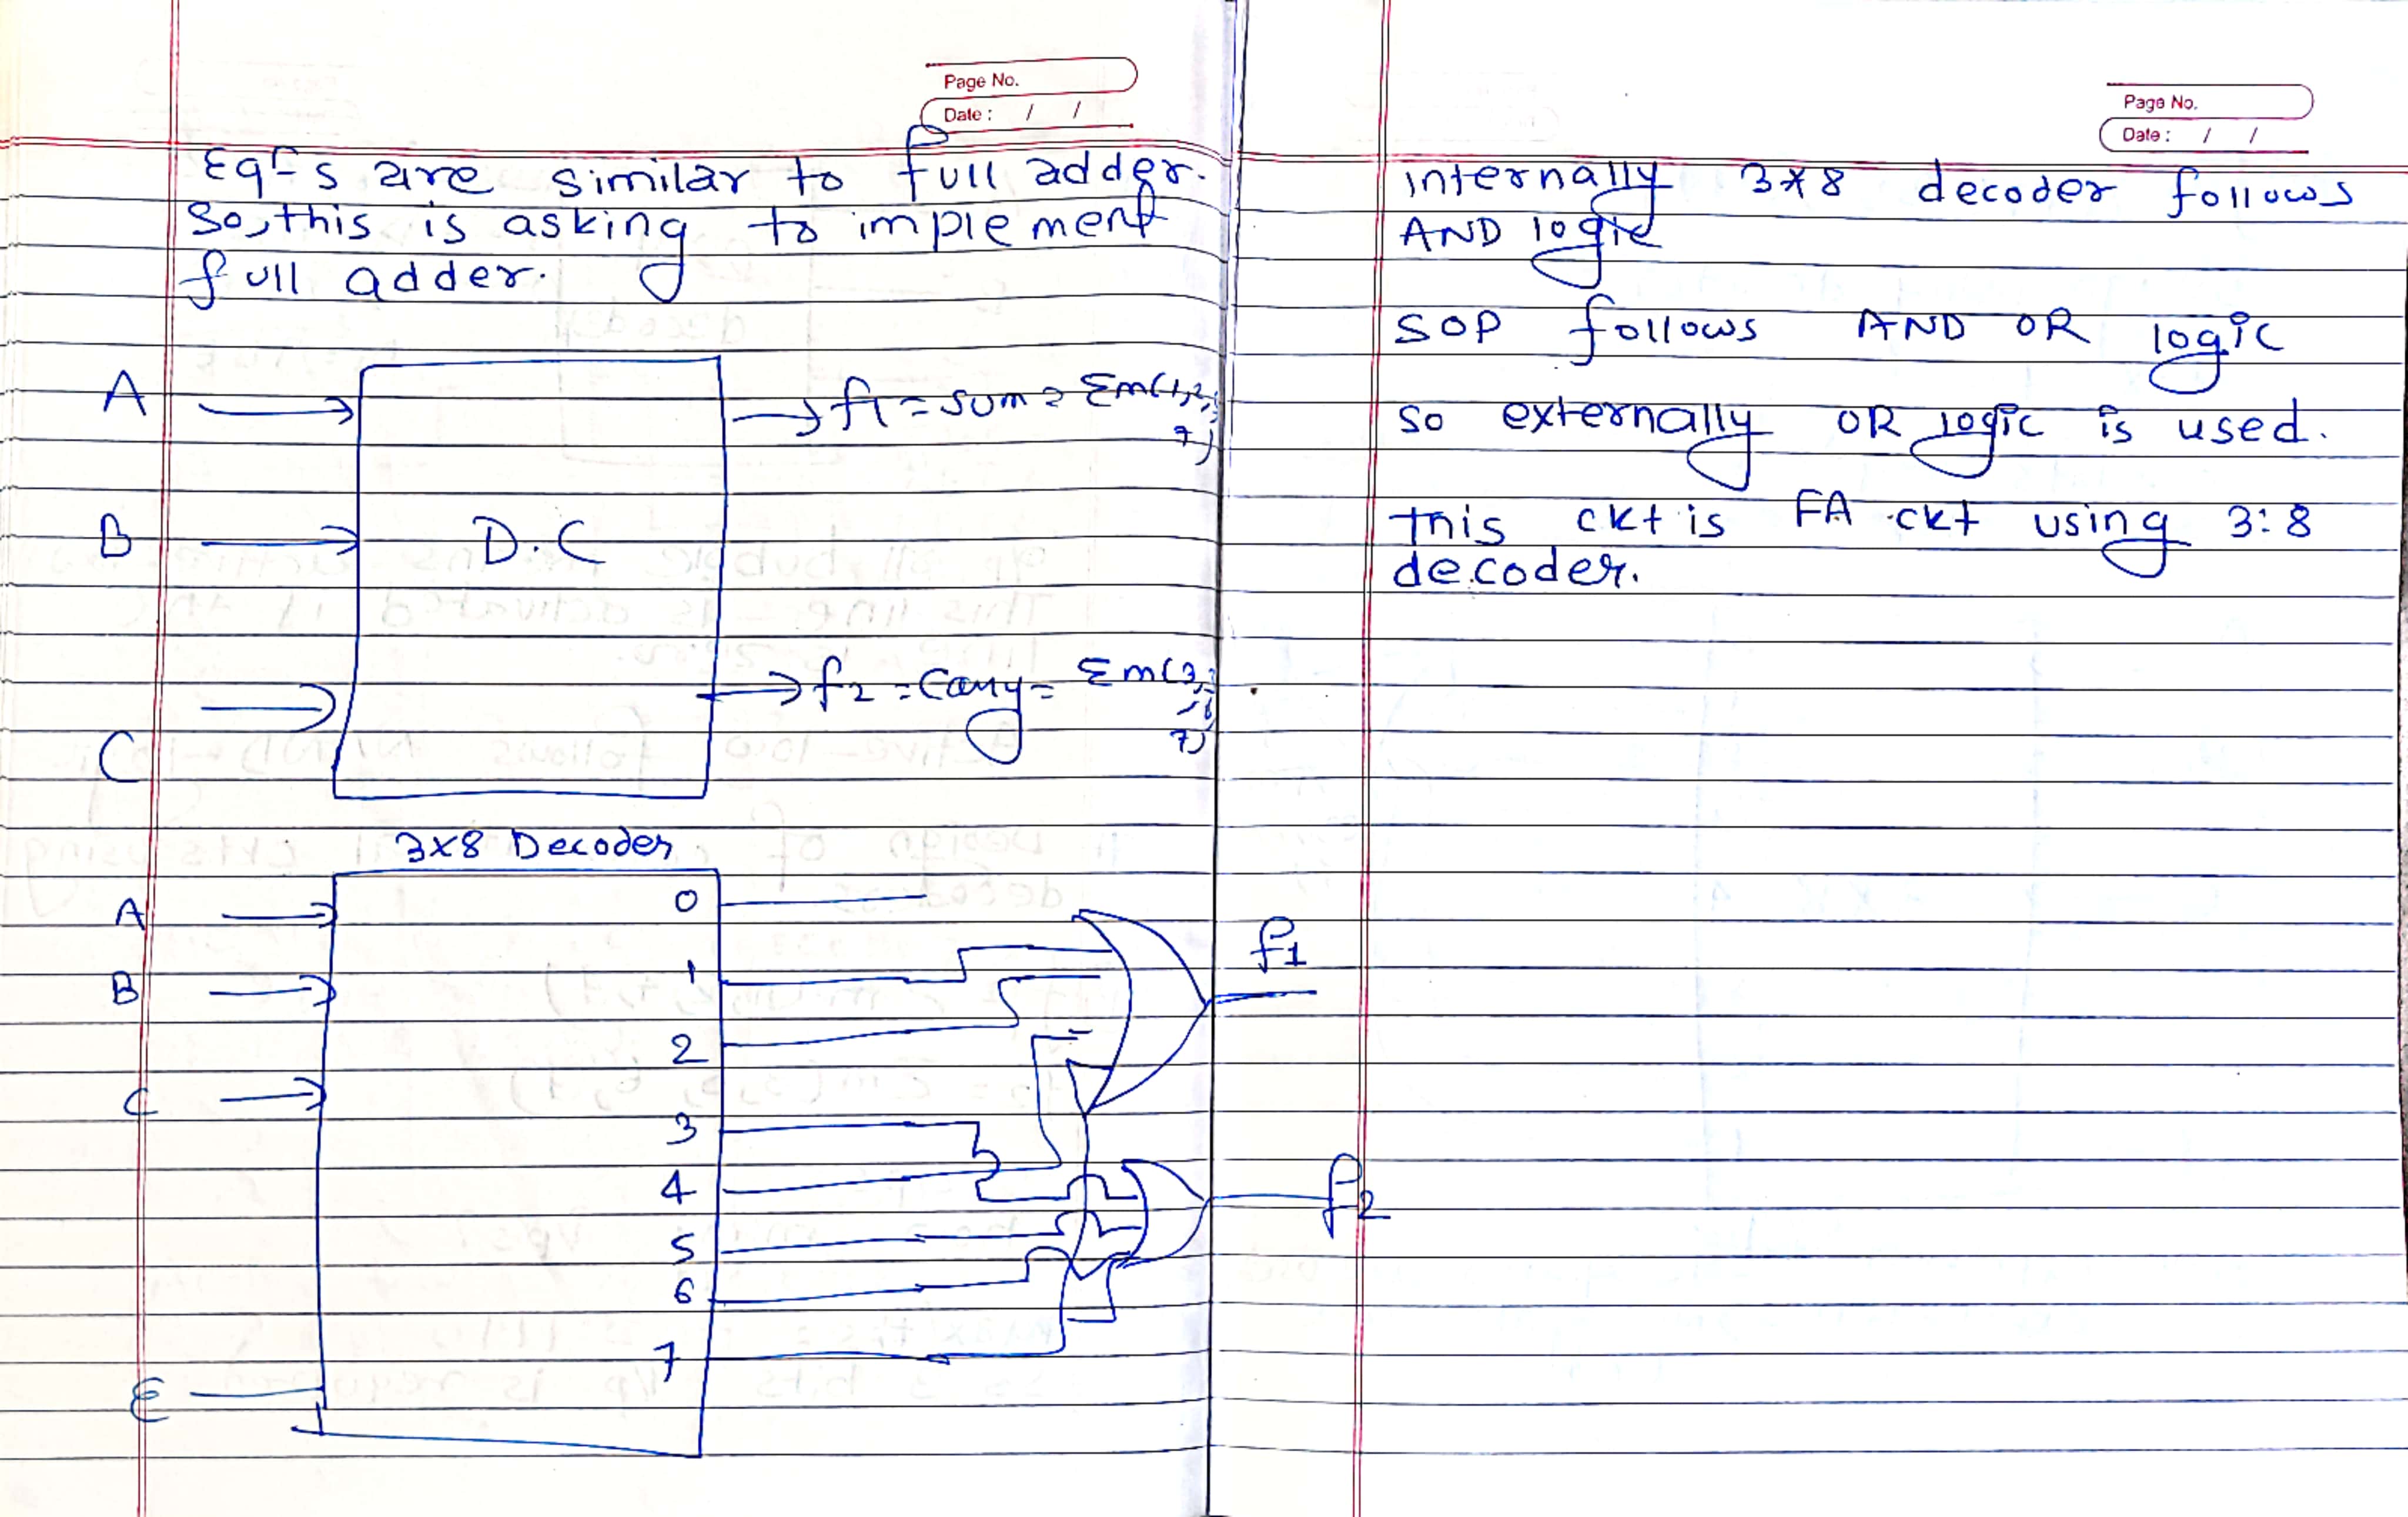 Page No.
Date : / /
Eqⁿs are similar to full adder.
So, this is asking to implement
full adder.
A
f1 = sum = Σm(1,2,
7)
B
D.C
f2 = Carry = Σm(3,
7)
C
3x8 Decoder
A
0
f1
1
B
2
C
3
4
f2
5
6
7
E
Page No.
Date : / /
internally 3*8 decoder follows
AND logic
SOP follows AND OR logic
so externally OR logic is used.
This ckt is FA ckt using 3:8
decoder.